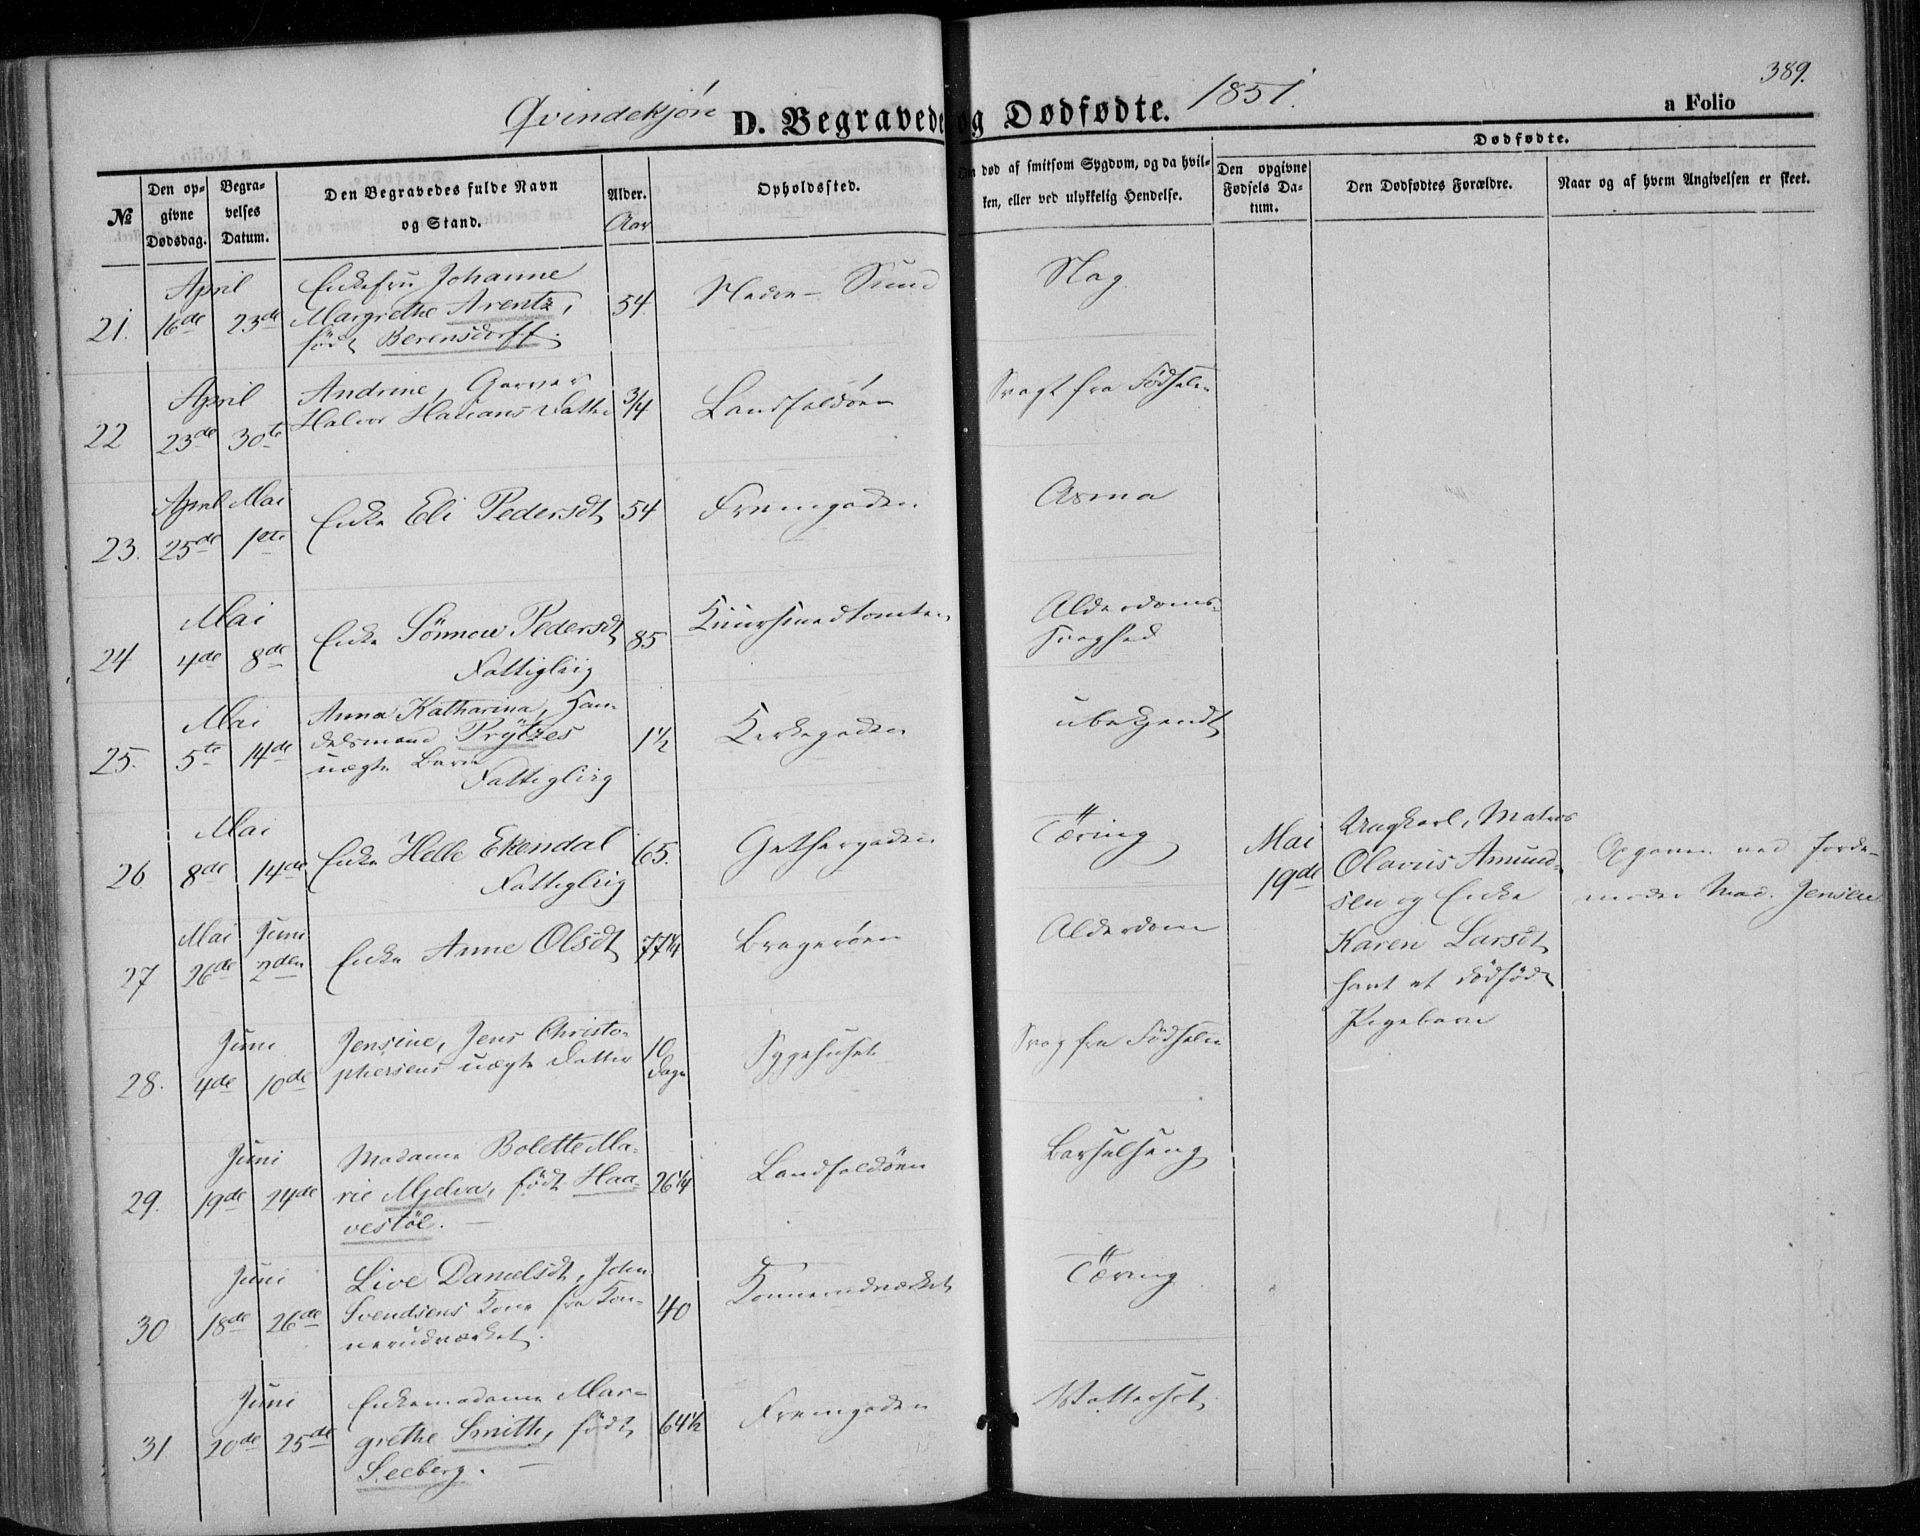 389.
Qvindekjøn D. Begravede og Dødfødte. 1851. a Folio
№
Den op-
givne
Dødsdag.
Begra-
velses
Datum.
Den Begravedes fulde Navn
og Stand.
Alder.
Aar
Opholdssted.
Om død af smitsom Sygdom, og da hvil-
ken, eller ved ulykkelig Hendelse.
Dødfødte.
Den opgivne
Fødsels Da-
tum.
Den Dødfødtes Forældre.
Naar og af hvem Angivelsen er skeet.
21. April 16de 23de
Enkefru Johanne
Margrethe Arentz,
født Berensdorff.
54. Nedre Sund
Slag
22 April 23de 30te
Andrine, Garver
Halvor Hansens Datter
3/4 Landfaldøen
Svagt fra Fødselen
23. April 25de Mai 1ste
Enke Eli Pedersdt
54 Fremgaden
Asma
24 Mai 4de 8de
Enke Sønnove Pedersdt
Fattiglig
85
Alderdoms-
svaghed
25. Mai 5te 14de
Anna Katharina, Han-
delsmand Prÿtzes
uægte Barn
Fattiglig
1 1/2 Kirkegaden
ubekjendt
26 Mai 8de 14de
Enke Helle Ekendal
Fattiglig
65. Gethergaden
Tæring
Mai
19de
Ungkarl, Matros
Olavus Amund-
sen og Enke
Karen Larsdt
havt et dødfødt
Pigebarn
Opgiven ved Jorde-
moder Mad. Jensen
27 Mai 26de Juni 2den
Enke Anne Olsdt
77 1/4 Bragerøen
Alderdom
28. Juni 4de 10de
Jensine, Jens Christo-
phersens uægte Datter
10
Dage
Sygehuset
Svag fra Fødselen
29. Juni 19de 24de
Madame Bolette Ma-
rie Mjelva, født Haa-
vestøl.
26 1/4 Landfaldøen
Barselseng
30 Juni 18de 26de
Live Danielsdt, John
Svendsens Kone fra Kon-
nerudværket.
40 Konnerudværket
Tæring
31 Juni 20de 25de
Enkemadame Mar-
grethe Smith, født
Seeberg.
64 1/2 Fremgaden
Vattersot.